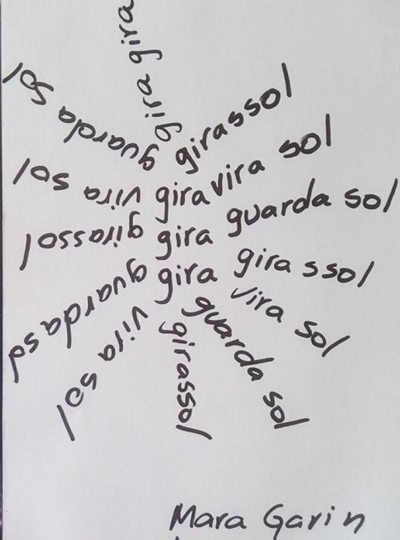 gira gira
girassol
vira sol
guarda sol
girassol
vira sol
guarda sol
girassol
vira sol
guarda sol
girassol
vira sol
guarda sol
gira
gira
gira
Mara Garin